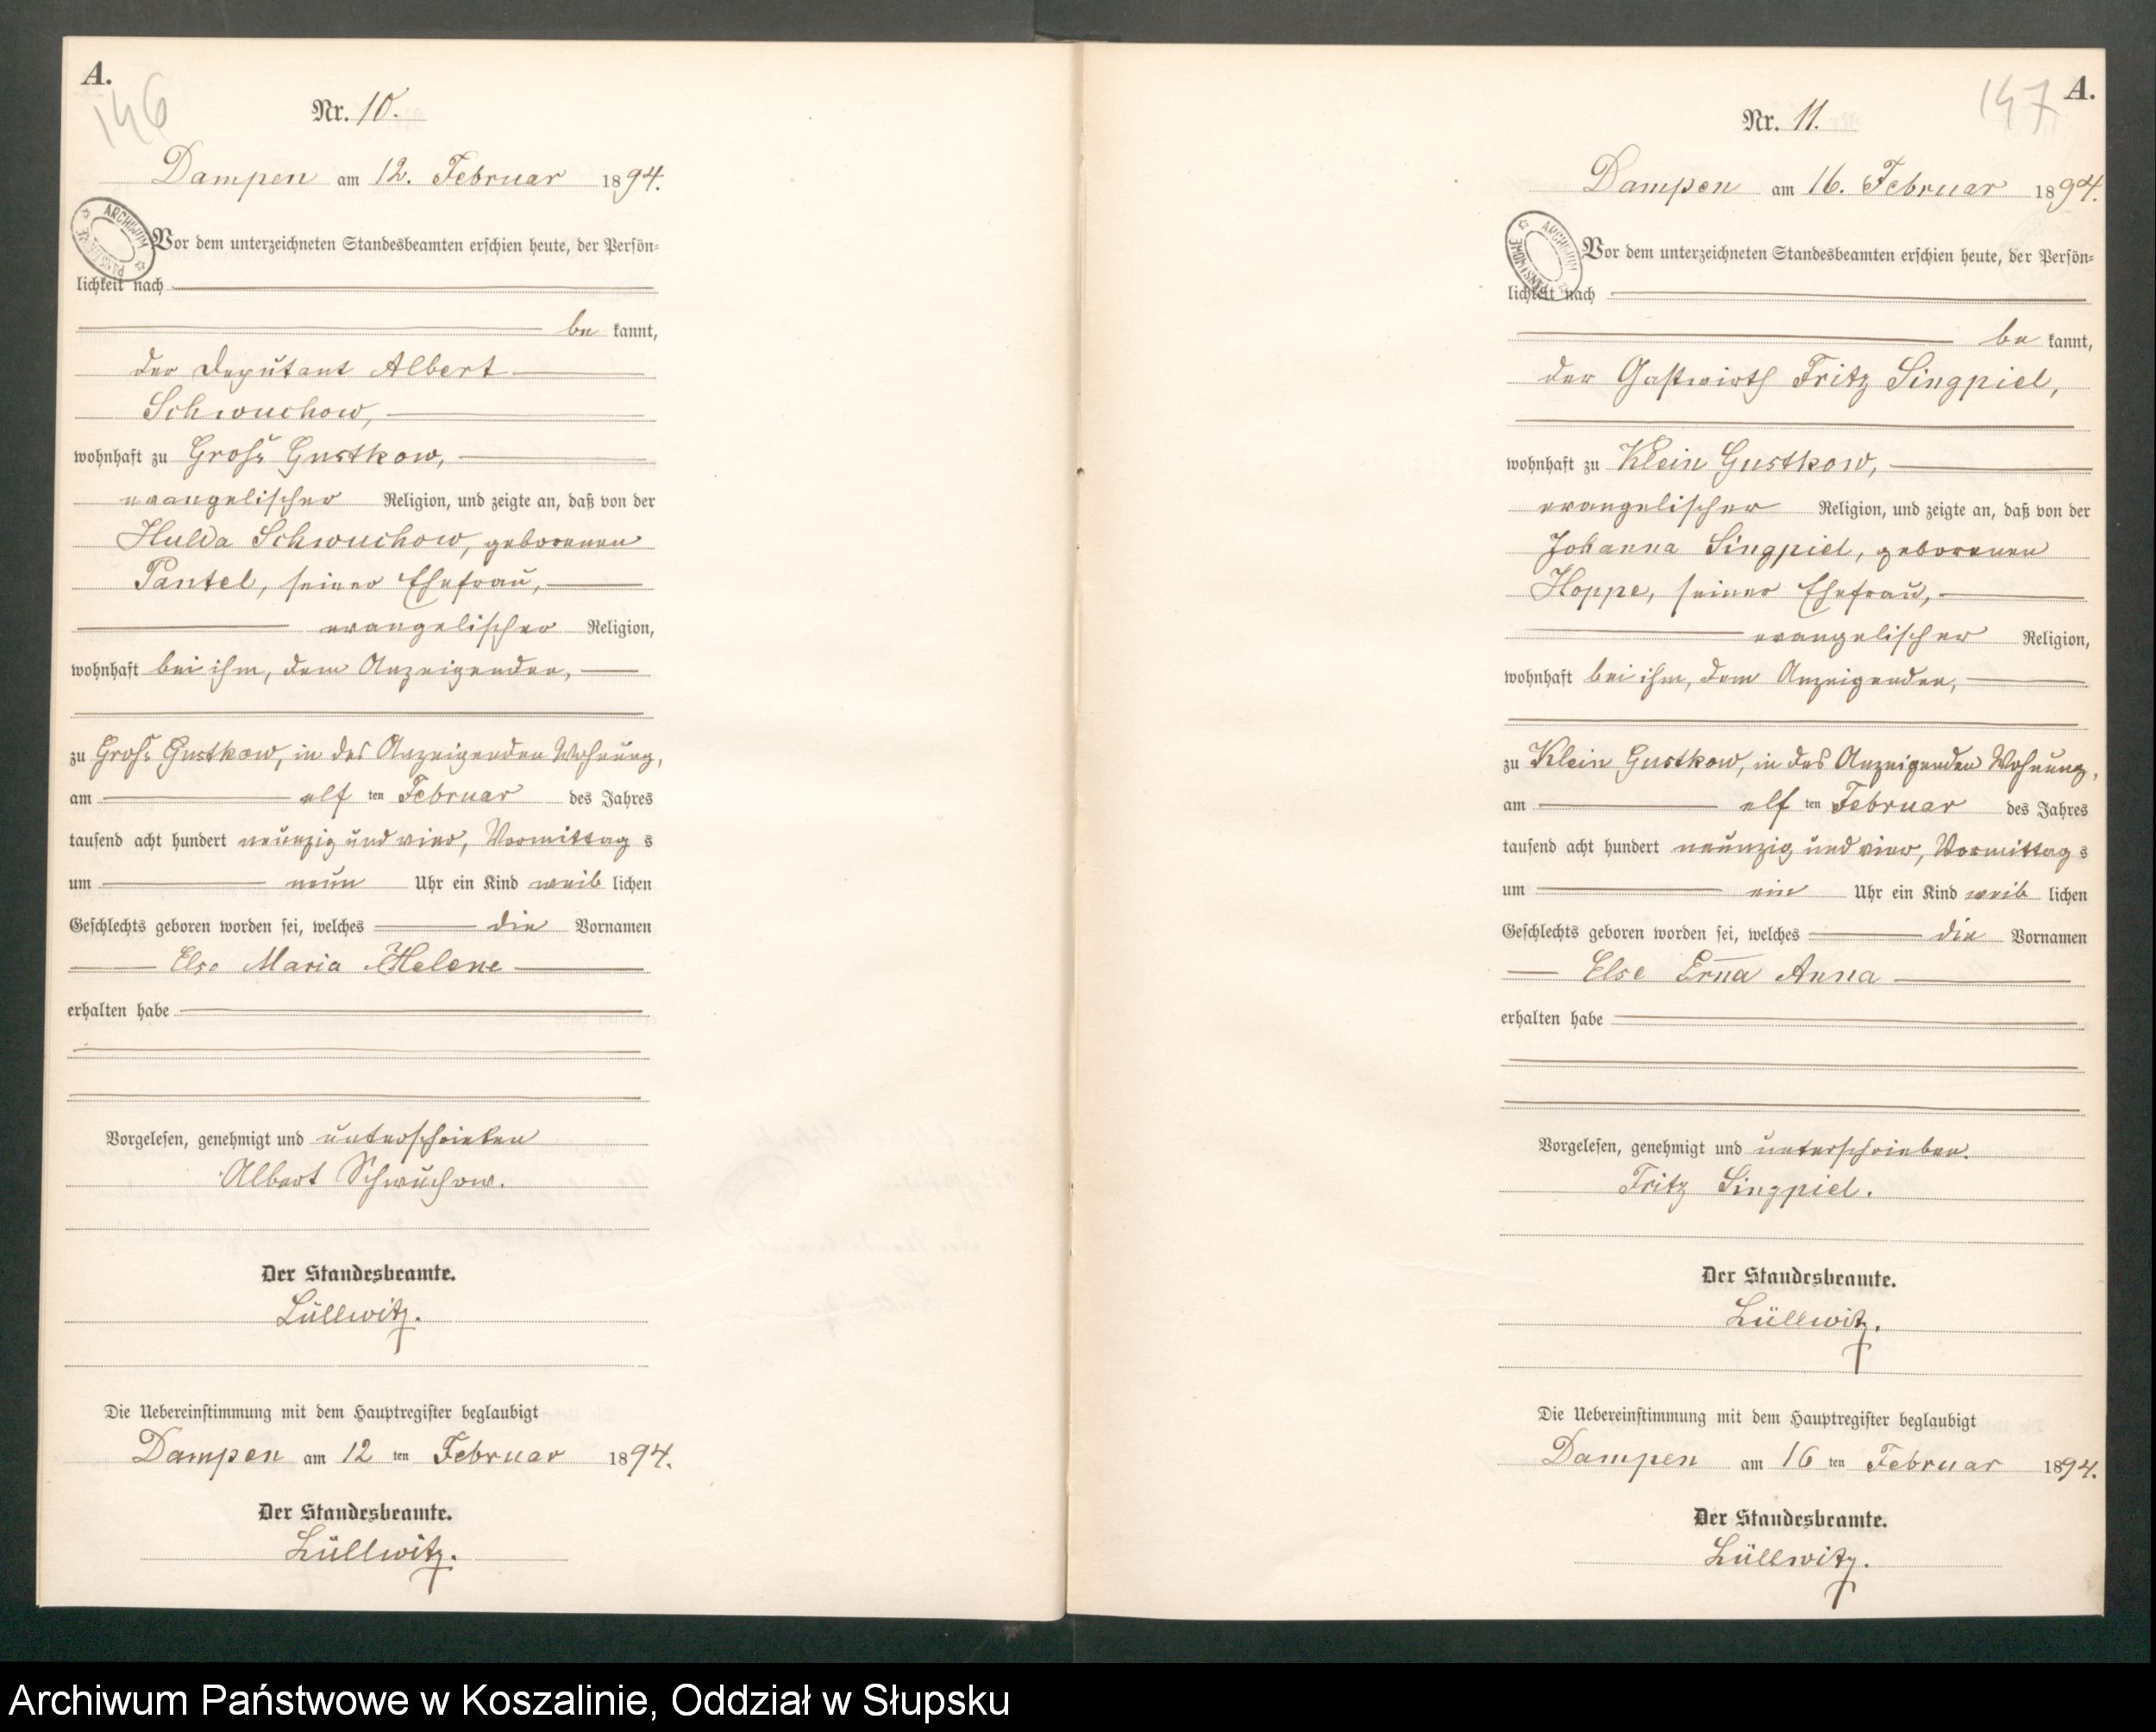 A.
146
Nr. 10.
Dampen am 12. Februar 1894.
ARCHIWUM PAŃSTWOWE
Vor dem unterzeichneten Standesbeamten erschien heute, der Persön-
lichkeit nach
be kannt,
der Deputant Albert
Schwuchow,
wohnhaft zu Gross Gustkow,
evangelischer Religion, und zeigte an, daß von der
Hulda Schwuchow, geborenen
Pantel, seiner Ehefrau,
evangelischer Religion,
wohnhaft bei ihm, dem Anzeigenden,
zu Gross Gustkow, in des Anzeigenden Wohnung,
am elf ten Februar des Jahres
tausend acht hundert neunzig und vier, Vormittag s
um neun Uhr ein Kind weib lichen
Geschlechts geboren worden sei, welches die Vornamen
Else Maria Helene
erhalten habe
Vorgelesen, genehmigt und unterschrieben
Albert Schwuchow.
Der Standesbeamte.
Lüllwitz.
Die Uebereinstimmung mit dem Hauptregister beglaubigt
Dampen am 12 ten Februar 1894.
Der Standesbeamte.
Lüllwitz.
147
A.
Nr. 11.
Dampen am 16. Februar 1894.
ARCHIWUM PAŃSTWOWE
Vor dem unterzeichneten Standesbeamten erschien heute, der Persön-
lichkeit nach
be kannt,
der Gastwirth Fritz Singpiel,
wohnhaft zu Klein Gustkow,
evangelischer Religion, und zeigte an, daß von der
Johanna Singpiel, geborenen
Hoppe, seiner Ehefrau,
evangelischer Religion,
wohnhaft bei ihm, dem Anzeigenden,
zu Klein Gustkow, in des Anzeigenden Wohnung,
am elf ten Februar des Jahres
tausend acht hundert neunzig und vier, Vormittag s
um ein Uhr ein Kind weib lichen
Geschlechts geboren worden sei, welches die Vornamen
Else Erna Anna
erhalten habe
Vorgelesen, genehmigt und unterschrieben.
Fritz Singpiel.
Der Standesbeamte.
Lüllwitz.
Die Uebereinstimmung mit dem Hauptregister beglaubigt
Dampen am 16 ten Februar 1894.
Der Standesbeamte.
Lüllwitz.
Archiwum Państwowe w Koszalinie, Oddział w Słupsku